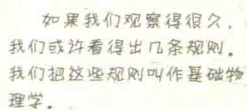 如果我们观察得很久,
我们或许看得出几条规则。
我们把这些规则叫作基础物
理学。